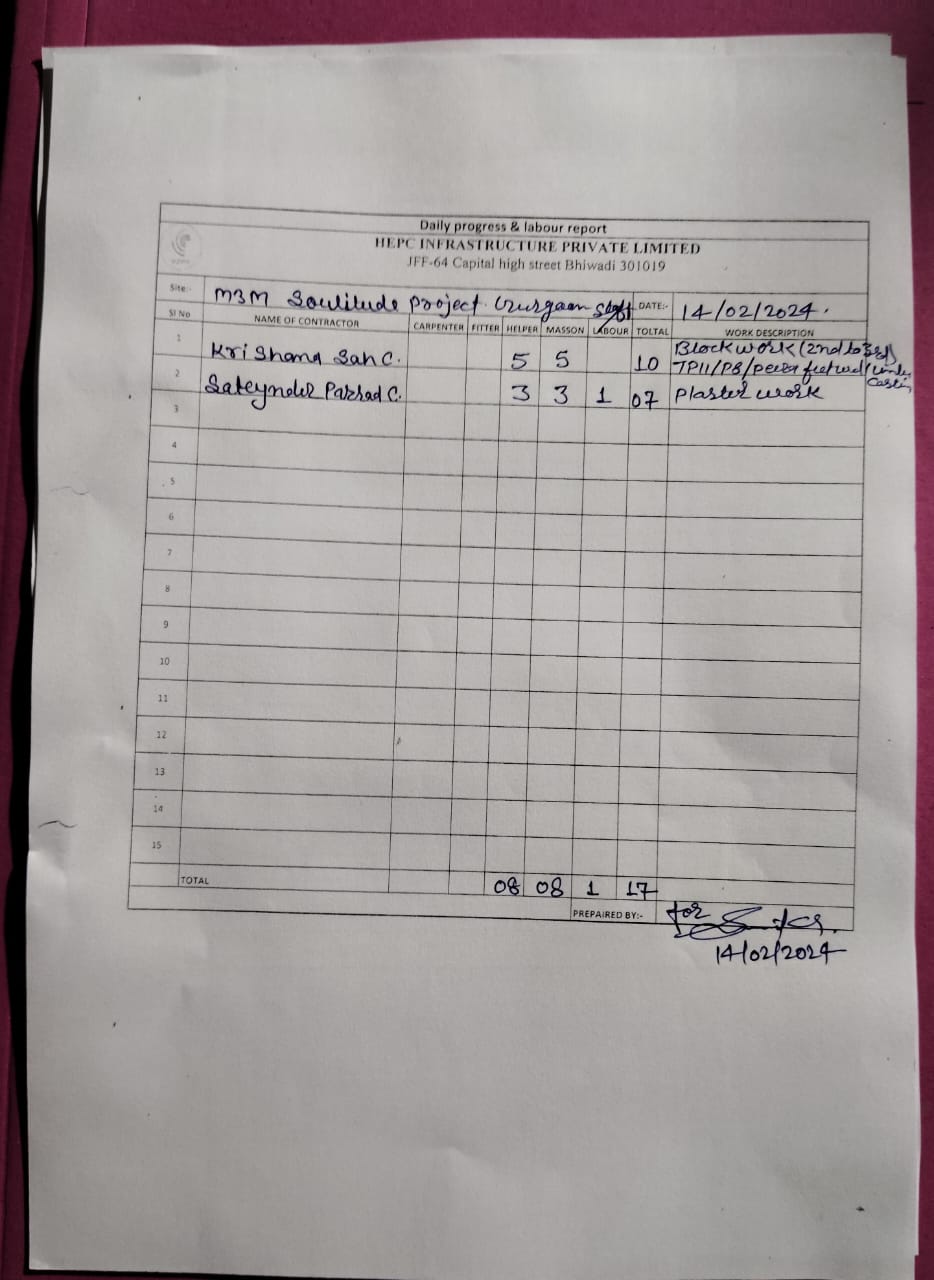 Daily progress & labour report
HEPC INFRASTRUCTURE PRIVATE LIMITED
JFF-64 Capital high street Bhiwadi 301019
Site:- M3M Soulitude Project Gurgaon DATE:- 14/02/2024.
Sl No NAME OF CONTRACTOR CARPENTER FITTER HELPER MASSON LABOUR TOLTAL WORK DESCRIPTION
1 Krishana Sah C. 5 5 10 Block work (2nd to 3rd)
TP11/P8/
2 Sateynder Parsad C. 3 3 1 07 Plaster work
3
4
5
6
7
8
9
10
11
12
13
14
15
TOTAL 08 08 1 17
PREPAIRED BY:- for
14/02/2024